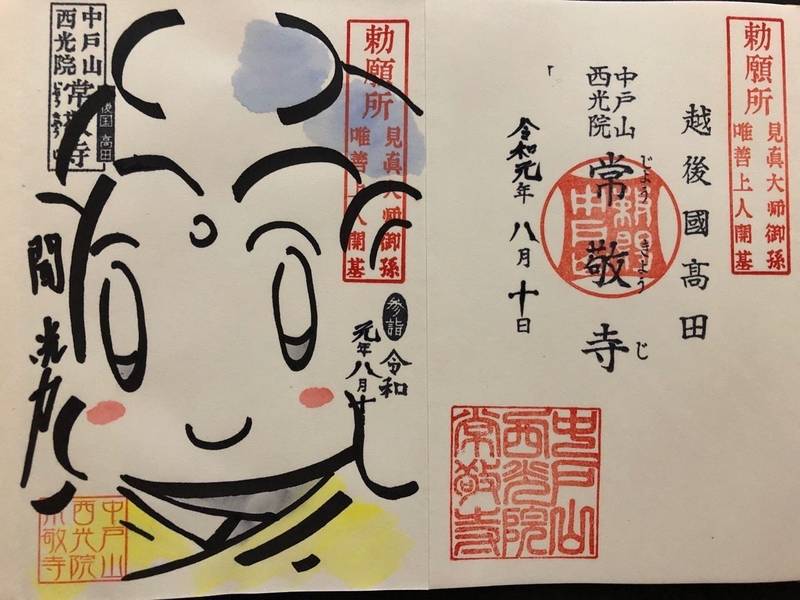 勅願所
見真大師御孫
唯善上人開基
越後國高田
中戸山
西光院
常敬寺
じょうきょうじ
令和元年八月十日
中戸山
西光院
常敬寺
勅願所
見真大師御孫
唯善上人開基
参詣
令和
元年八月十
中戸山
西光院
常敬寺
後国高田
聞光力
中戸山
西光院
常敬寺